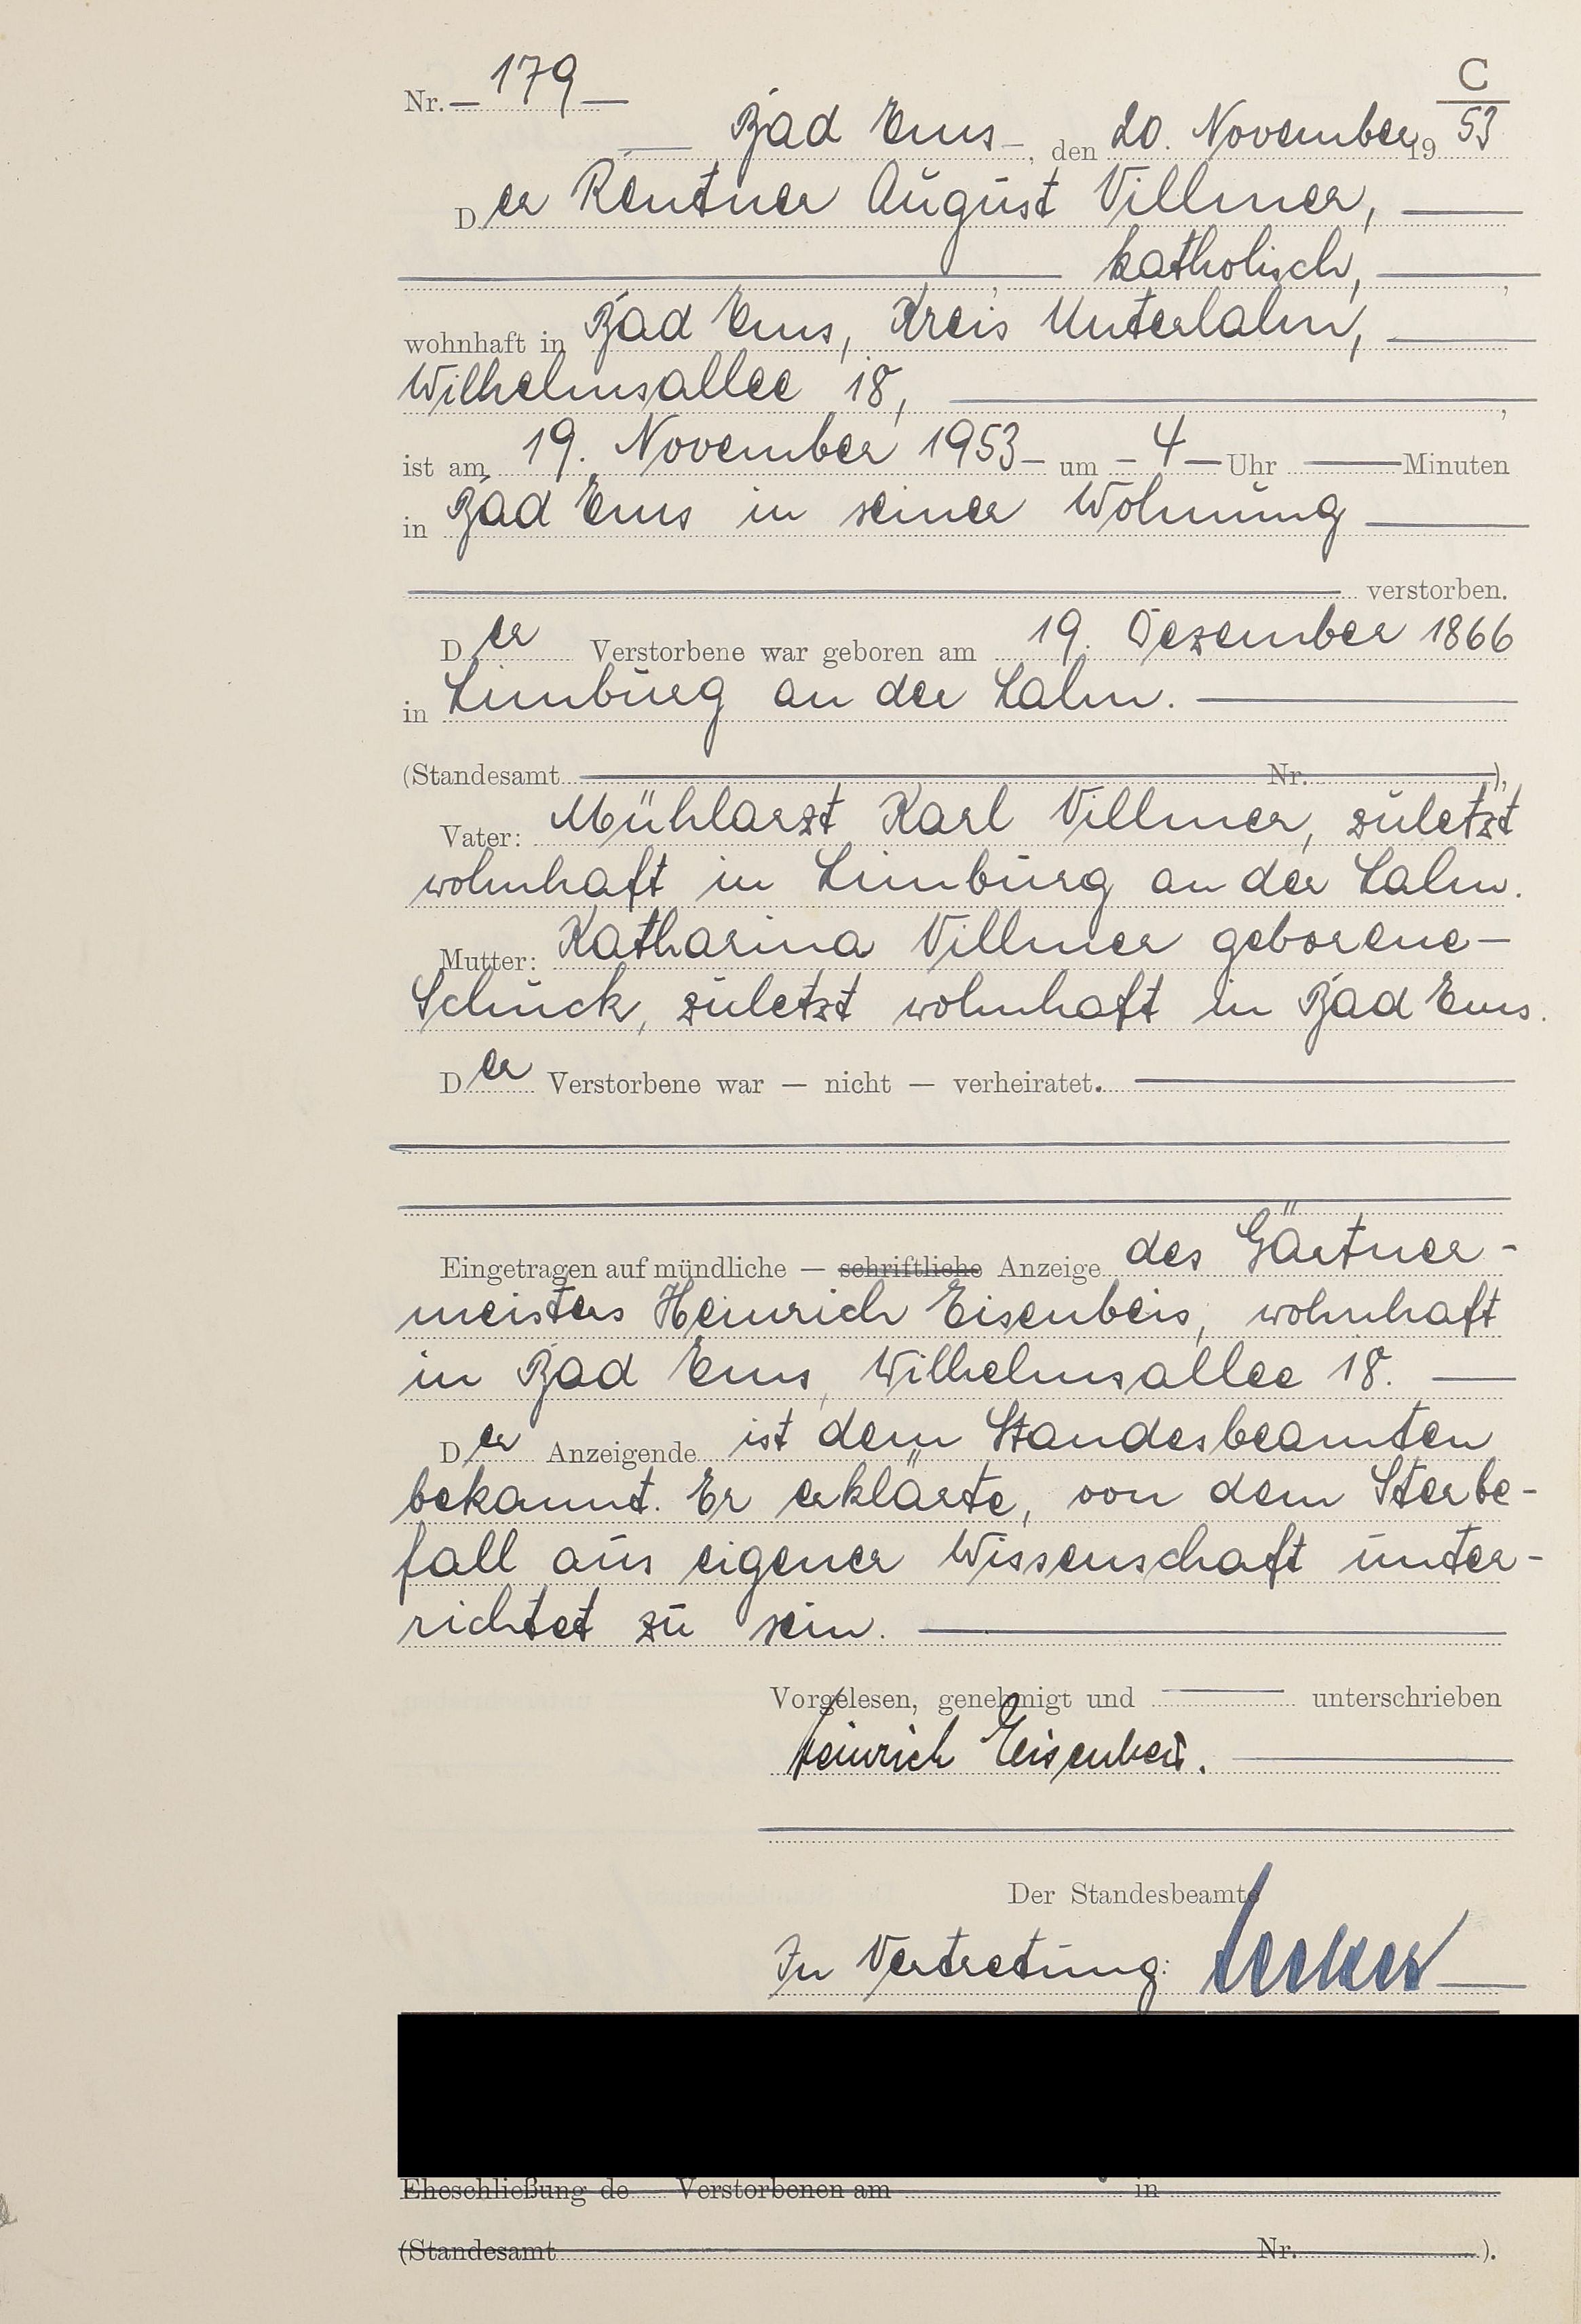 C
Nr. 179
Bad Ems, den 20. November 1953
Der Rentner August Villmer,
katholisch,
wohnhaft in Bad Ems, Kreis Unterlahn,
Wilhelmsallee 18,
ist am 19. November 1953 um 4 Uhr Minuten
in Bad Ems in seiner Wohnung
verstorben.
Der Verstorbene war geboren am 19. Dezember 1866
in Limburg an der Lahn.
(Standesamt Nr. ),
Vater: Mühlarzt Karl Villmer, zuletzt
wohnhaft in Limburg an der Lahn.
Mutter: Katharina Villmer geborene
Schuck, zuletzt wohnhaft in Bad Ems.
Der Verstorbene war — nicht — verheiratet.
Eingetragen auf mündliche — schriftliche Anzeige des Gärtner-
meisters Heinrich Eisenbeis, wohnhaft
in Bad Ems, Wilhelmsallee 18.
Der Anzeigende ist dem Standesbeamten
bekannt. Er erklärte, von dem Sterbe-
fall aus eigener Wissenschaft unter-
richtet zu sein.
Vorgelesen, genehmigt und unterschrieben
Heinrich Eisenbeis.
Der Standesbeamte
In Vertretung:
Eheschließung de Verstorbenen am in
(Standesamt Nr. ).